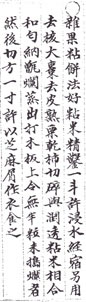 ○雜果粘餅法好粘米精鑿一斗許浸水經宿另用
去核大棗去皮熟栗乾柿切碎與潤透粘米相合
和勻納甑爛蒸出打木板上令無半粒未搗爛者
然後切方一寸許以芝麻屑作衣食之